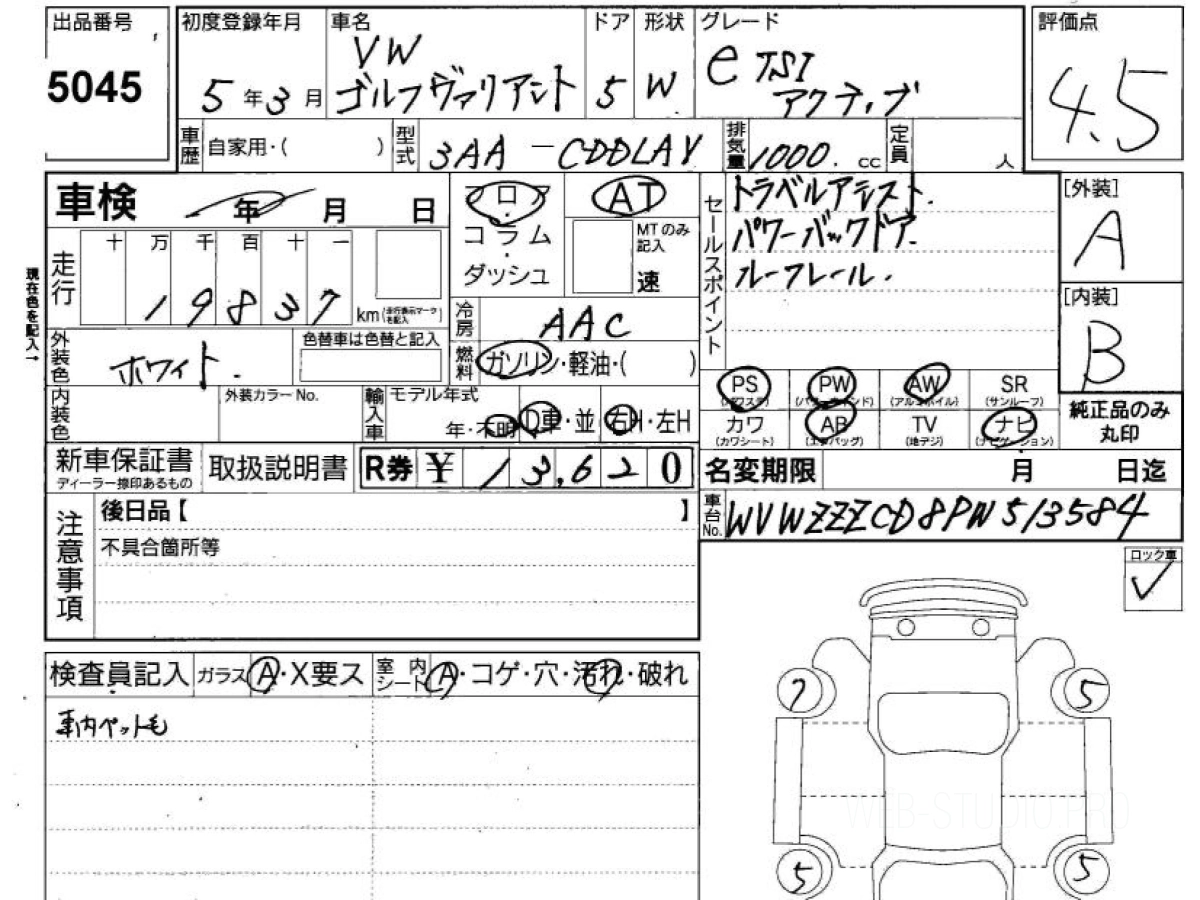 出品番号 初度登録年月 車名 ドア 形状 グレード 評価点
5045 5年3月 VW ゴルフヴァリアント 5 W eTSI アクティブ 4.5
車歴 自家用・( ) 型式 3AA-CDDLAY 排気量 1000. cc 定員 人
車検 年 月 日 フロア AT
コラム
ダッシュ MTのみ記入 速
セールスポイント トラベルアシスト.
パワーバックドア.
ルーフレール.
[外装] A
[内装] B
現在色を記入→
走行 十 万 千 百 十 一
19837 km(走行表示マークを記入)
冷房 AAC
外装色 ホワイト. 色替車は色替と記入 燃料 ガソリン・軽油・( )
内装色 外装カラーNo. 輸入車 モデル年式 年・不明 D車・並 右H・左H
PS(パワステ) PW(パワーウインド) AW(アルミホイル) SR(サンルーフ)
カワ(カワシート) AB(エアバッグ) TV(地デジ) ナビ(ナビゲーション)
純正品のみ丸印
新車保証書 ディーラー捺印あるもの 取扱説明書 R券 ¥ 13,620 名変期限 月 日迄
注意事項 後日品【 】
不具合箇所等
車台No. WVWZZZCD8PW513584
ロック車 ✓
検査員記入 ガラス A・X要ス 室内シート A・コゲ・穴・汚れ・破れ
車内ペット毛
7 5
WEB-STUDIO.PRO
5 5